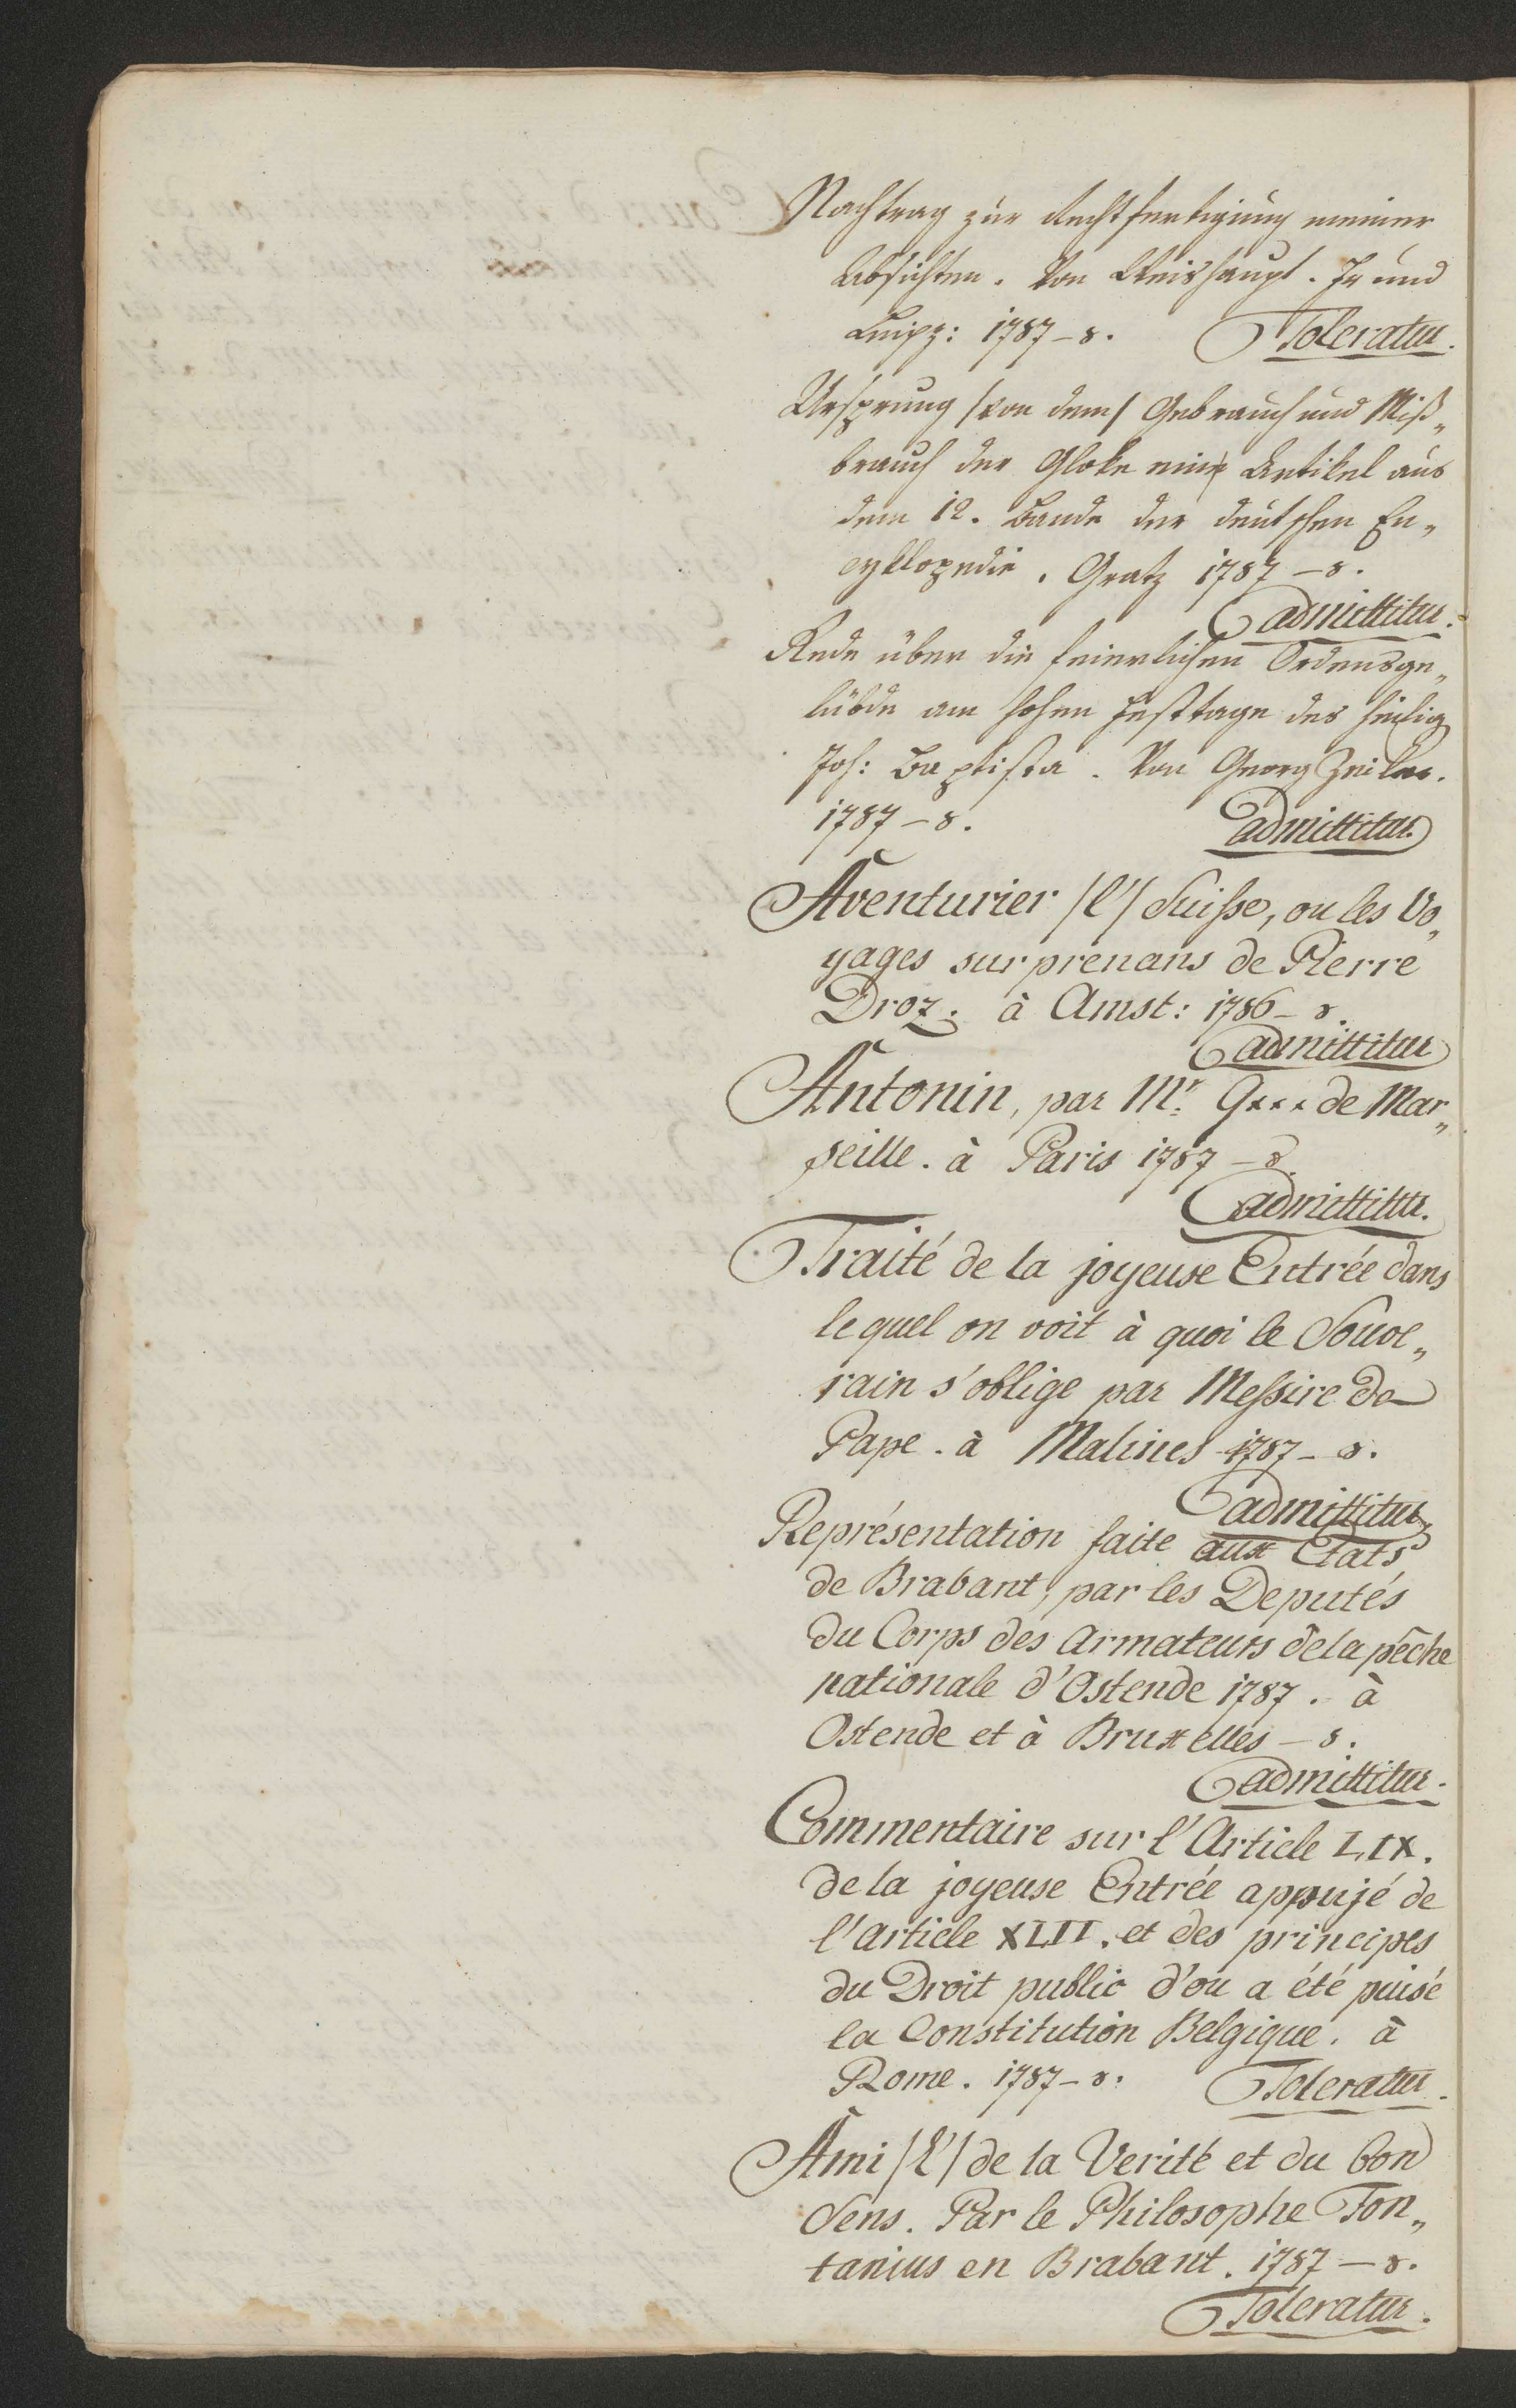 Nachtrag zur Rechtfertigung meiner
Absichten. Von Weishaupt. Ff und
Leipz: 1787-8. Toleratur.
Ursprung /von dem/ Gebrauch und Miß„
brauch der Gloke ein Artikel aus
dem 12. Bande der deutschen En„
cyklopedie. Gratz 1787-8.
admittitur.
Rede über die feierlichen Ordensge„
lübde am hohen Festtage des heilig
Joh: Baptista. Von Georg Zeiler.
1787-8. admittitur.
Aventurier /l'/ Suisse, ou les Vo„
yages surprenans de Pierre
Droz. à Amst: 1786-8.
admittitur
Antonin, par Mr. G*** de Mar„
seille. à Paris 1787-8.
admittitur.
Traité de la joyeuse Entrée dans
lequel on voit à quoi le Souve„
rain s'oblige par Messire de
Pape. à Malines 1787-8.
admittitur
Représentation faite aux Etats
de Brabant, par les Deputés
du Corps des armateurs de la pêche
nationale d'Ostende 1787. à
Ostende et à Bruxelles-8.
admittitur.
Commentaire sur l'Article LIX.
de la joyeuse Entrée appujé de
l'article XLII. et des principes
du Droit public d'ou a été puisé
la Constitution Belgique. à
Rome. 1787-8. Toleratur.
Ami /l'/ de la Verité et du bon
Sens. Par le Philosophe Ton„
tanius en Brabant. 1787-8.
Toleratur.